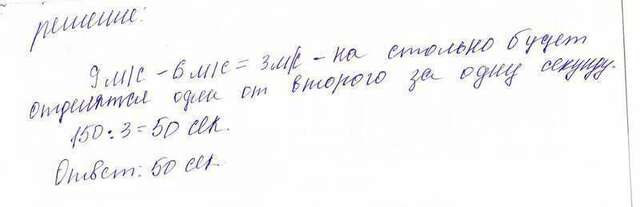 решение:
9 м/с - 6 м/с = 3 м/с - на столько будет
отделятся один от второго за одну секунду.
150 : 3 = 50 сек.
Ответ: 50 сек.